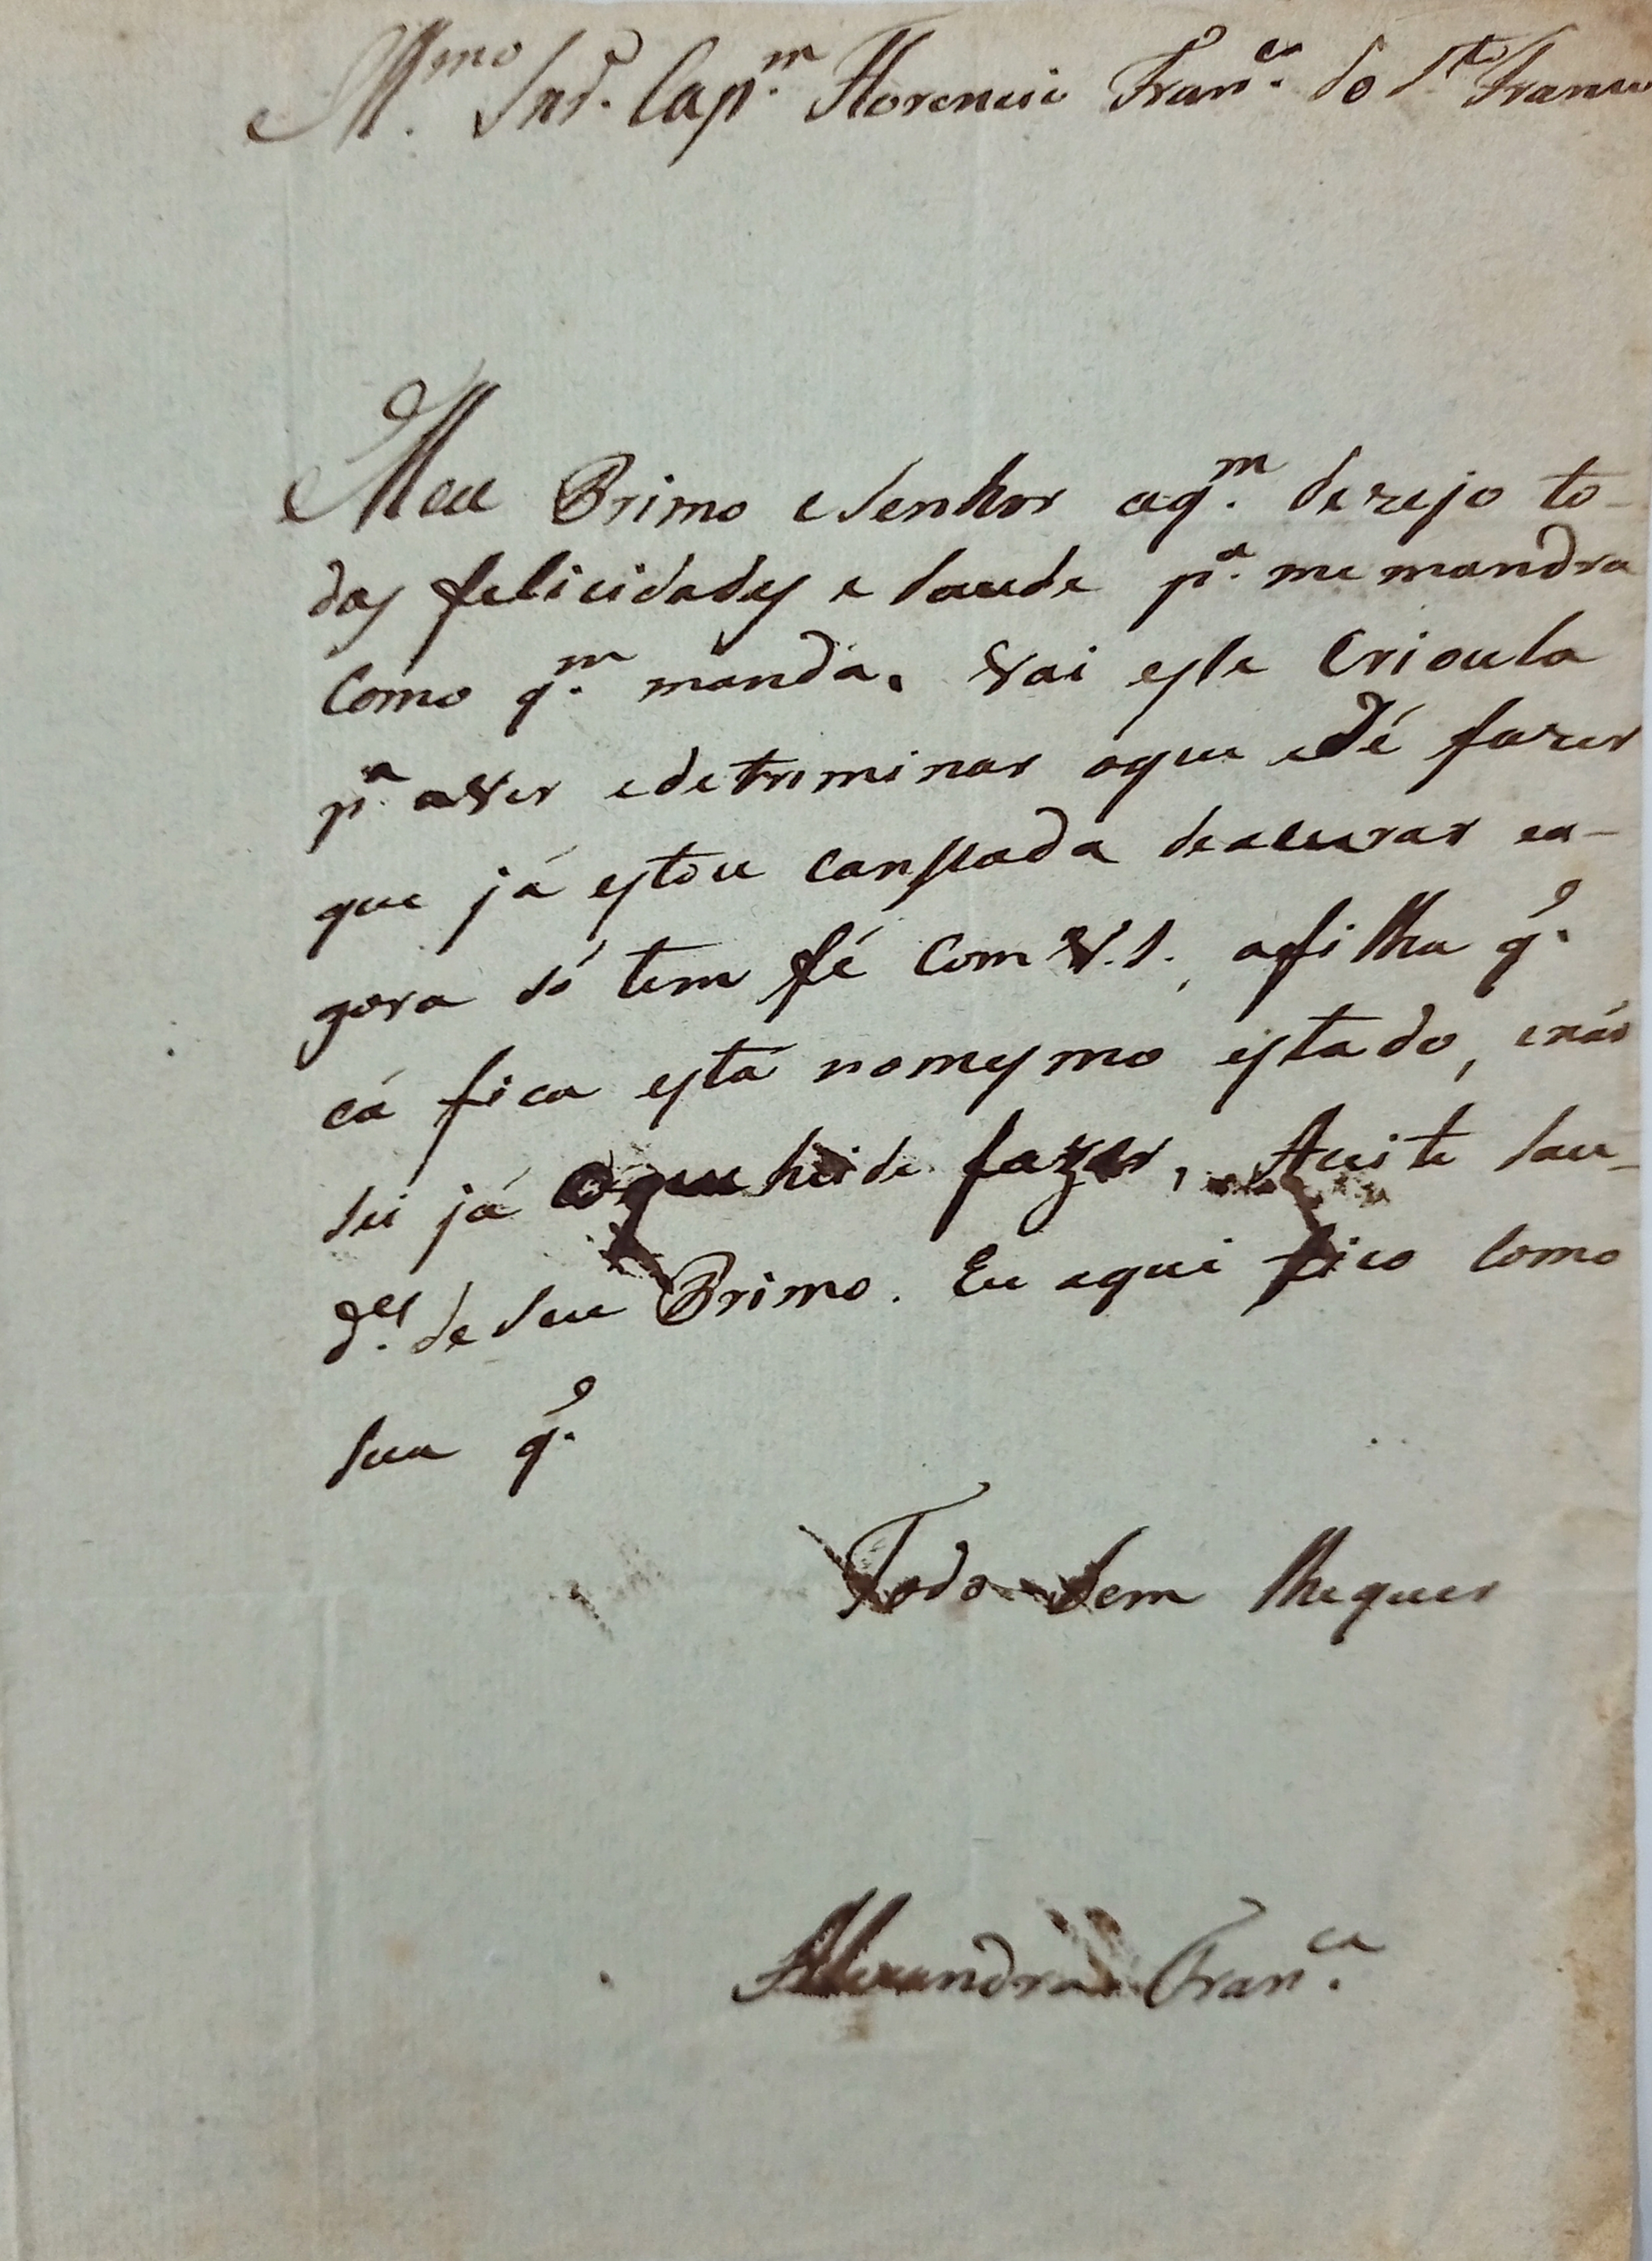 Illmo Snr. Capm. Florencio Franco. do Sto Franco
Meu Primo eSenhor aqm. dezejo to-
das felicidades e saude pa. me mandra
como qm. manda. Vai esta Crioula
pa. aver edetriminar oque edé fazer
que já estou canssada deacurar ea-
gora só tem fé com V.S., afilha qe.
cá fica está nomesmo estado, enão
sei já oque heide fazer, Aceite sau-
des. de seu Primo. Eu aqui fico como
sua qe.
Todo bem lhequer
Alexandra Franca.